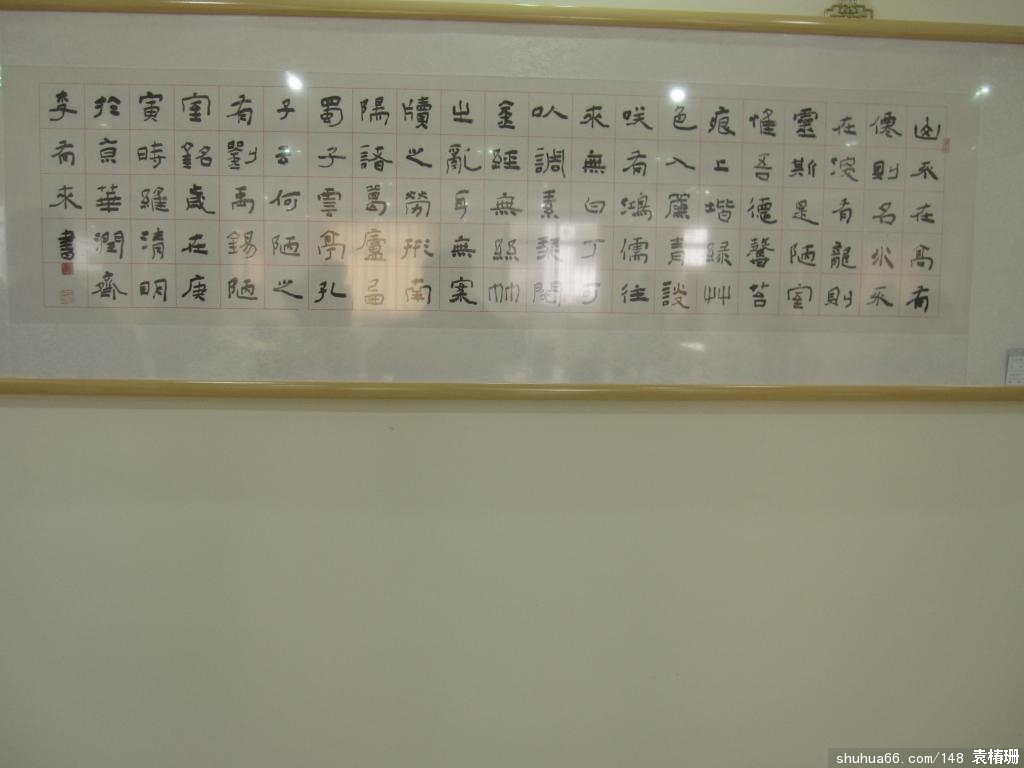 山不在高有
僊則名水不
在深有龍則
靈斯是陋室
惟吾德馨苔
痕上堦綠艸
色入簾青談
咲有鴻儒往
來無白丁可
以調素琴閱
金經無絲竹
之亂耳無案
牘之勞形南
陽諸葛廬西
蜀子雲亭孔
子云何陋之
有劉禹錫陋
室銘歲在庚
寅時維清明
於京華潤齋
李有來書
shuhua66.com/148 袁椿珊